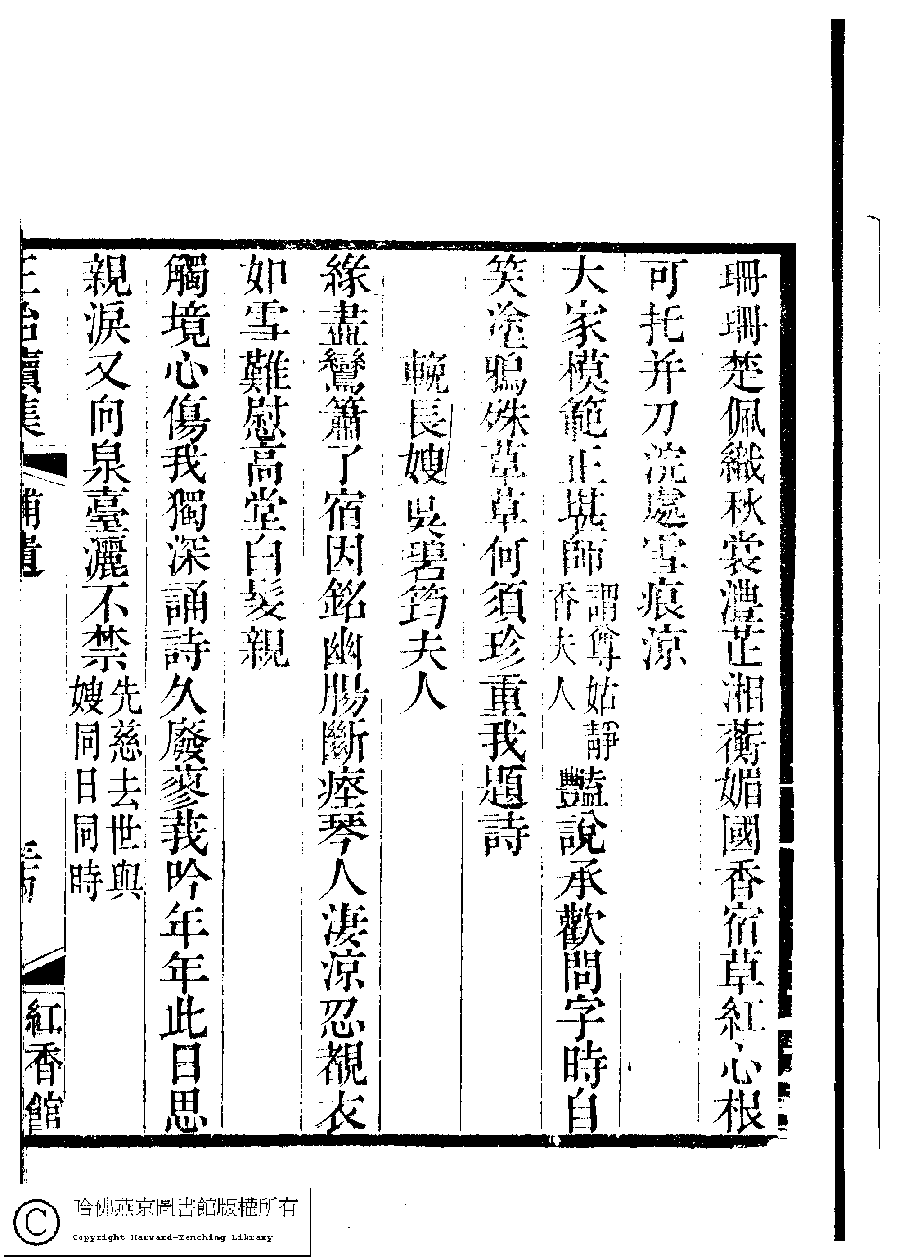 珊珊楚佩織秋裳澧芷湘蘅媚國香宿草紅心根
可托并刀浣處雪痕涼
大家模範正堪師謂尊姑靜香夫人豔說承歡問字時自
笑塗鴉姝草草何須珍重我題詩
輓長嫂吳碧筠夫人
緣盡鸞簫了宿因銘幽腸斷瘞琴人淒涼忍覩衣
如雪難慰高堂白髮親
觸境心傷我獨深誦詩久廢蓼莪吟年年此日思
親淚又向泉臺灑不禁先慈去世與嫂同日同時
續集
補遺
紅香館
哈佛燕京圖書館版權所有
Copyright Harvard-Yenching Library